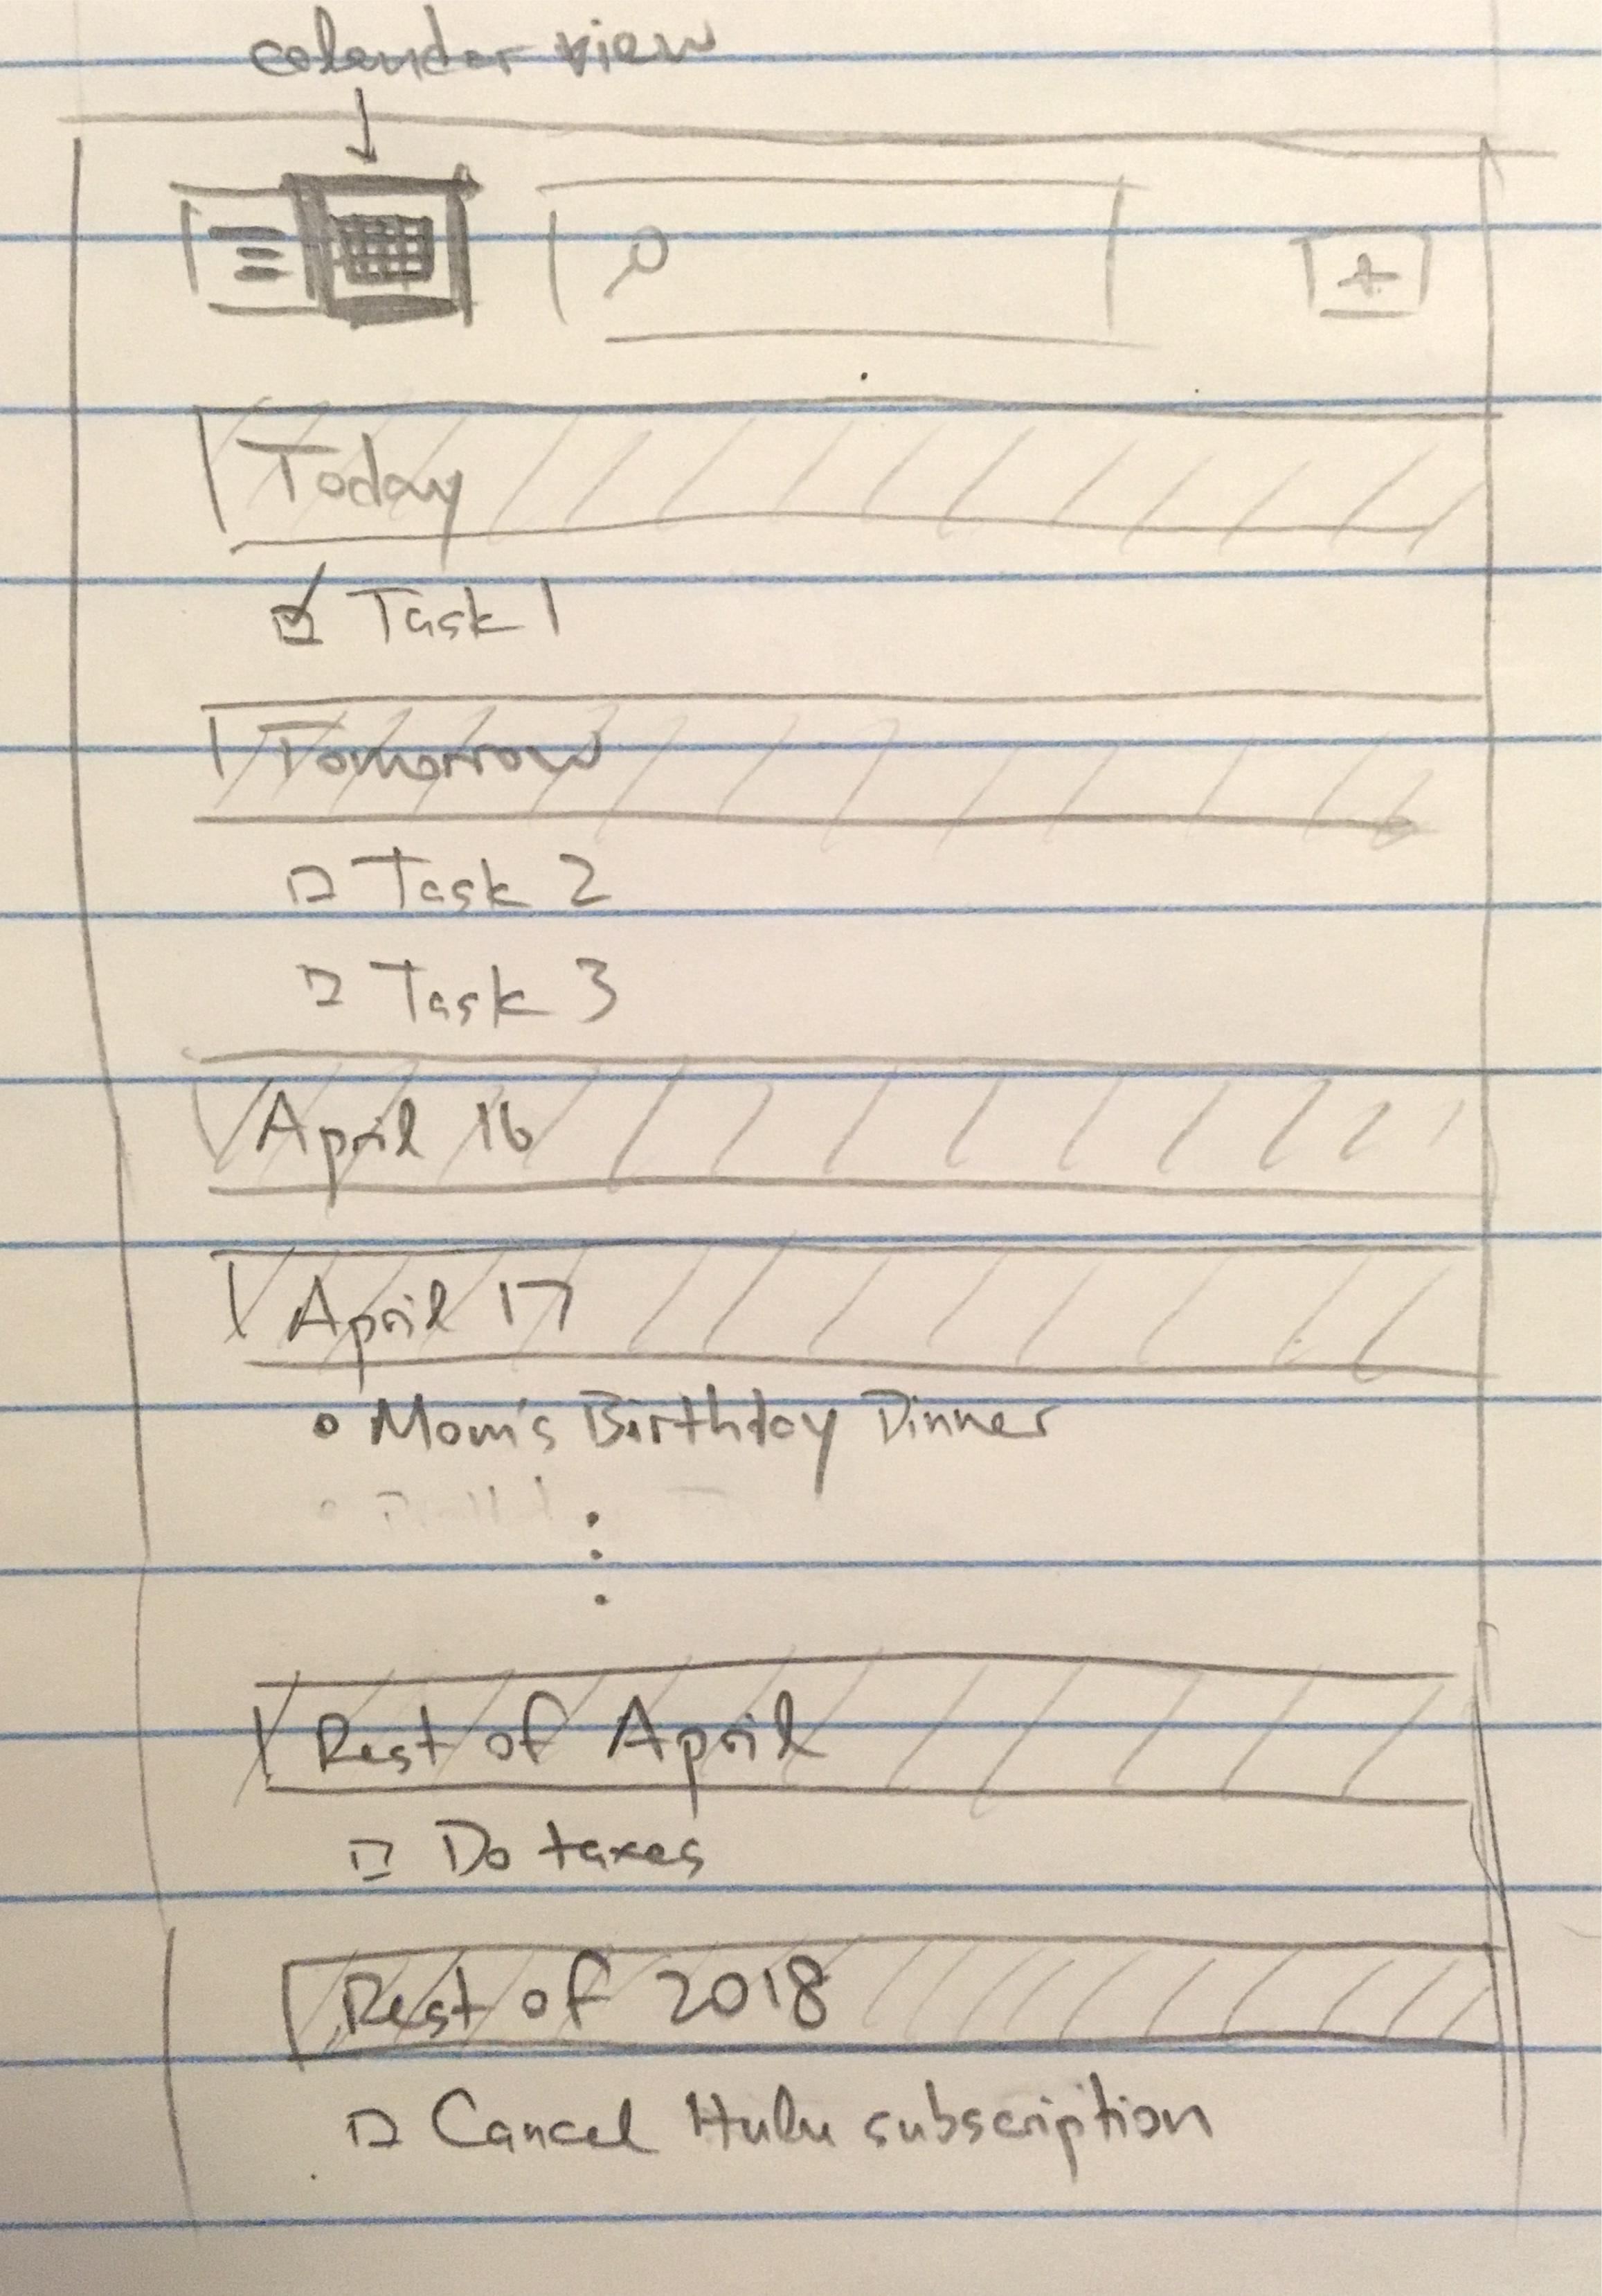 calendar view
Today
Task 1
Tomorrow
Task 2
Task 3
April 16
April 17
Mom's Birthday Dinner
Rest of April
Do taxes
Rest of 2018
Cancel Hulu subscription